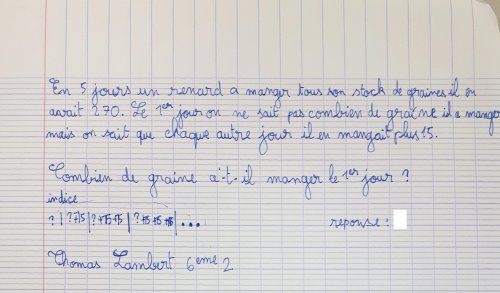 En 5 jours un renard a manger tous son stock de graines il en
avait 270. Le 1er jour on ne sait pas combien de graine il a manger
mais on sait que chaque autre jour il en mangait plus 15.
Combien de graine a-t-il manger le 1er jour ?
indice
? | ?+15 | ?+15+15 | ?+15+15+15 | ...
reponse :
Thomas Lambert 6eme 2